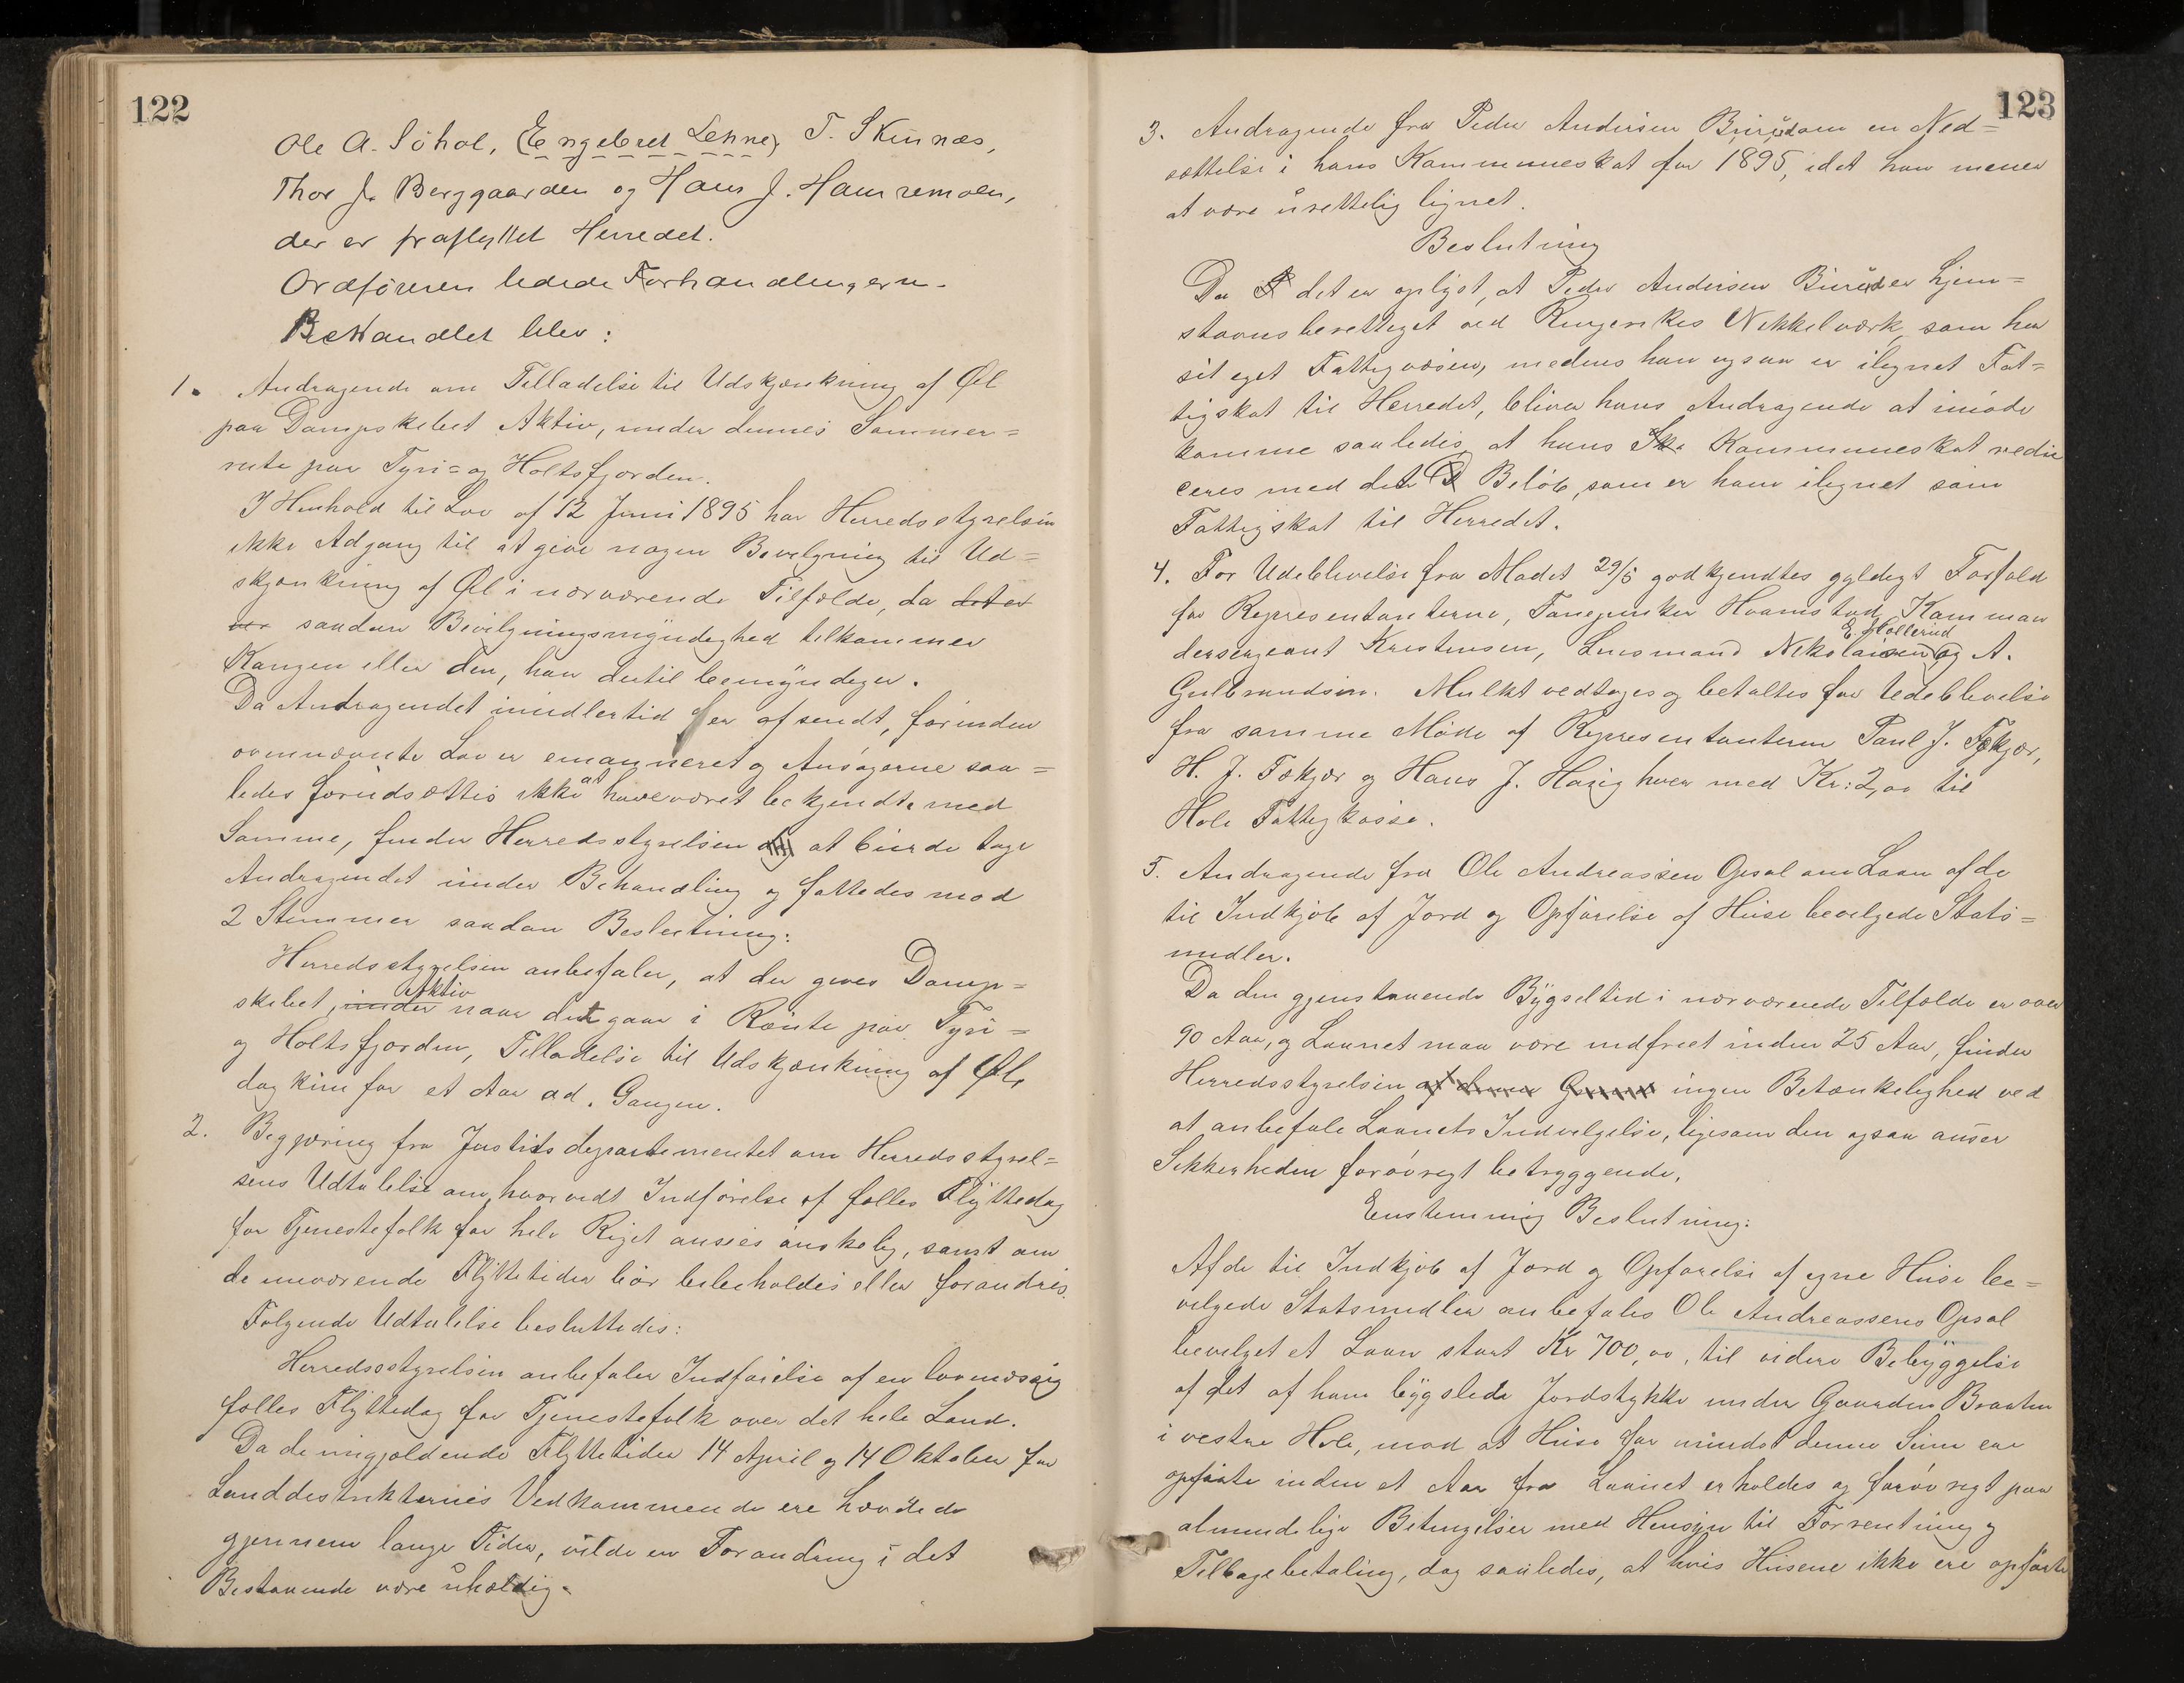 122
Ole A. Søhol, (Engebret Lehne), T. Skinnæs,
Thor J. Berggaarden og Hans J. Hamremoen,
der er fraflyttet Herredet.
Ordføreren ledede Forhandlingern.
Behandlet blev:
1. Andragende om Tilladelse til Udskjænkning af Øl
paa Dampskibet Aktiv, under dennes Sommer=
rute paa Tyri= og Holtsfjorden.
I Henhold til Lov af 12 Juni 1895 har Herredsstyrelsen
ikke Adgang til at give nogen Bevilgning til Ud=
skjænkning af Øl i nærværende Tilfælde, da det er
saadan Bevilgningsmyndighed tilkommer
Kongen eller den, han dertil bemyndiger.
Da Andragendet imidlertid er afsendt, forinden
ovennævnte Lov er emanneret og Ansøgerne saa=
ledes forudsættes ikke at have været bekjendte med
Samme, finder Herredsstyrelsen at burde tage
Andragendet under Behandling og fattedes mod
2 Stemmer saadan Beslutning:
Herredsstyrelsen anbefaler, at der gives Damp=
skibet, under Aktiv naar det gaar i Route paa Tyri=
og Holtsfjorden, Tilladelse til Udskjænkning af Øl,
dog kun for et Aar ad Gangen.
2. Begjæring fra Justitsdepartementet om Herredsstyrel=
sens Udtalelse om, hvorvidt Indførelse af fælles Flyttedag
for Tjenestefolk for hele Riget ansees ønskelig, samt om
de nuværende Flyttetider bør bibeholdes eller forandres.
Følgende Udtalelse besluttedes:
Herredsstyrelsen anbefaler Indførelse af en lovmæssig
fælles Flyttedag for Tjenestefolk over det hele Land.
Da de nugjældende Flyttetider 14 April og 14 Oktober for
Landdistrikternes Vedkommende ere hævdede
gjennem lange Tider, vilde en Forandring i det
Bestaaende være uheldig.
123
3. Andragende fra Peder Andersen Burud om en Ned=
sættelse i hans Kommuneskat for 1895, idet han mener
at være urettelig lignet.
Beslutning
Da det er oplyst, at Peder Andersen Burud er hjem=
stavnsberettiget ved Ringerikes Nikkelværk, som har
sit eget Fattigvæsen, medens han ogsaa er ilignet Fat=
tigskat til Herredet, bliver hans Andragende at imøde
komme saaledes, at hans Kommuneskat redu
ceres med det Beløb, som er ham ilignet som
Fattigskat til Herredet.
4. For Udeblivelse fra Mødet 29/5 godkjendtes gyldigt Forfald
for Representanterne, Fanejunker Hvamstad, Komman
dersergeant Kristensen, Lensmand Nikolaisen, E. Hollerud og A.
Gulbrandsen. Mulkt vedtoges og betaltes for Udeblivelse
fra samme Møde af Representanterne Paul J. Fekjær,
H. J. Fekjær og Hans J. Haug hver med Kr: 2,00 til
Hole Fattigkasse.
5. Andragende fra Ole Andreassen Opsal om Laan af de
til Indkjøb af Jord og Opførelse af Huse bevilgede Stats=
midler.
Da den gjenstaaende Bygseltid i nærværende Tilfælde er over
90 Aar, og Laanet maa være indfriet inden 25 Aar, finder
Herredsstyrelsen af denne Grund ingen Betænkelighed ved
at anbefale Laanets Indvilgelse, ligesom den ogsaa anser
Sikkerheden forøvrigt betryggende.
Enstemmig Beslutning:
Af de til Indkjøb af Jord og Opførelse af egne Huse be=
vilgede Statsmidler anbefales Ole Andreassens Opsal
bevilget et Laan stort Kr 700,00, til videre Bebyggelse
af det af ham bygslede Jordstykke under Gaarden Braaten
i vestre Hole, mod at Huse for mindst denne Sum ere
opførte inden et Aar fra Laanet erholdes og forøvrigt paa
almindelige Betingelser med Hensyn til Forrentning og
Tilbagebetaling, dog saaledes, at hvis Husene ikke ere opførte